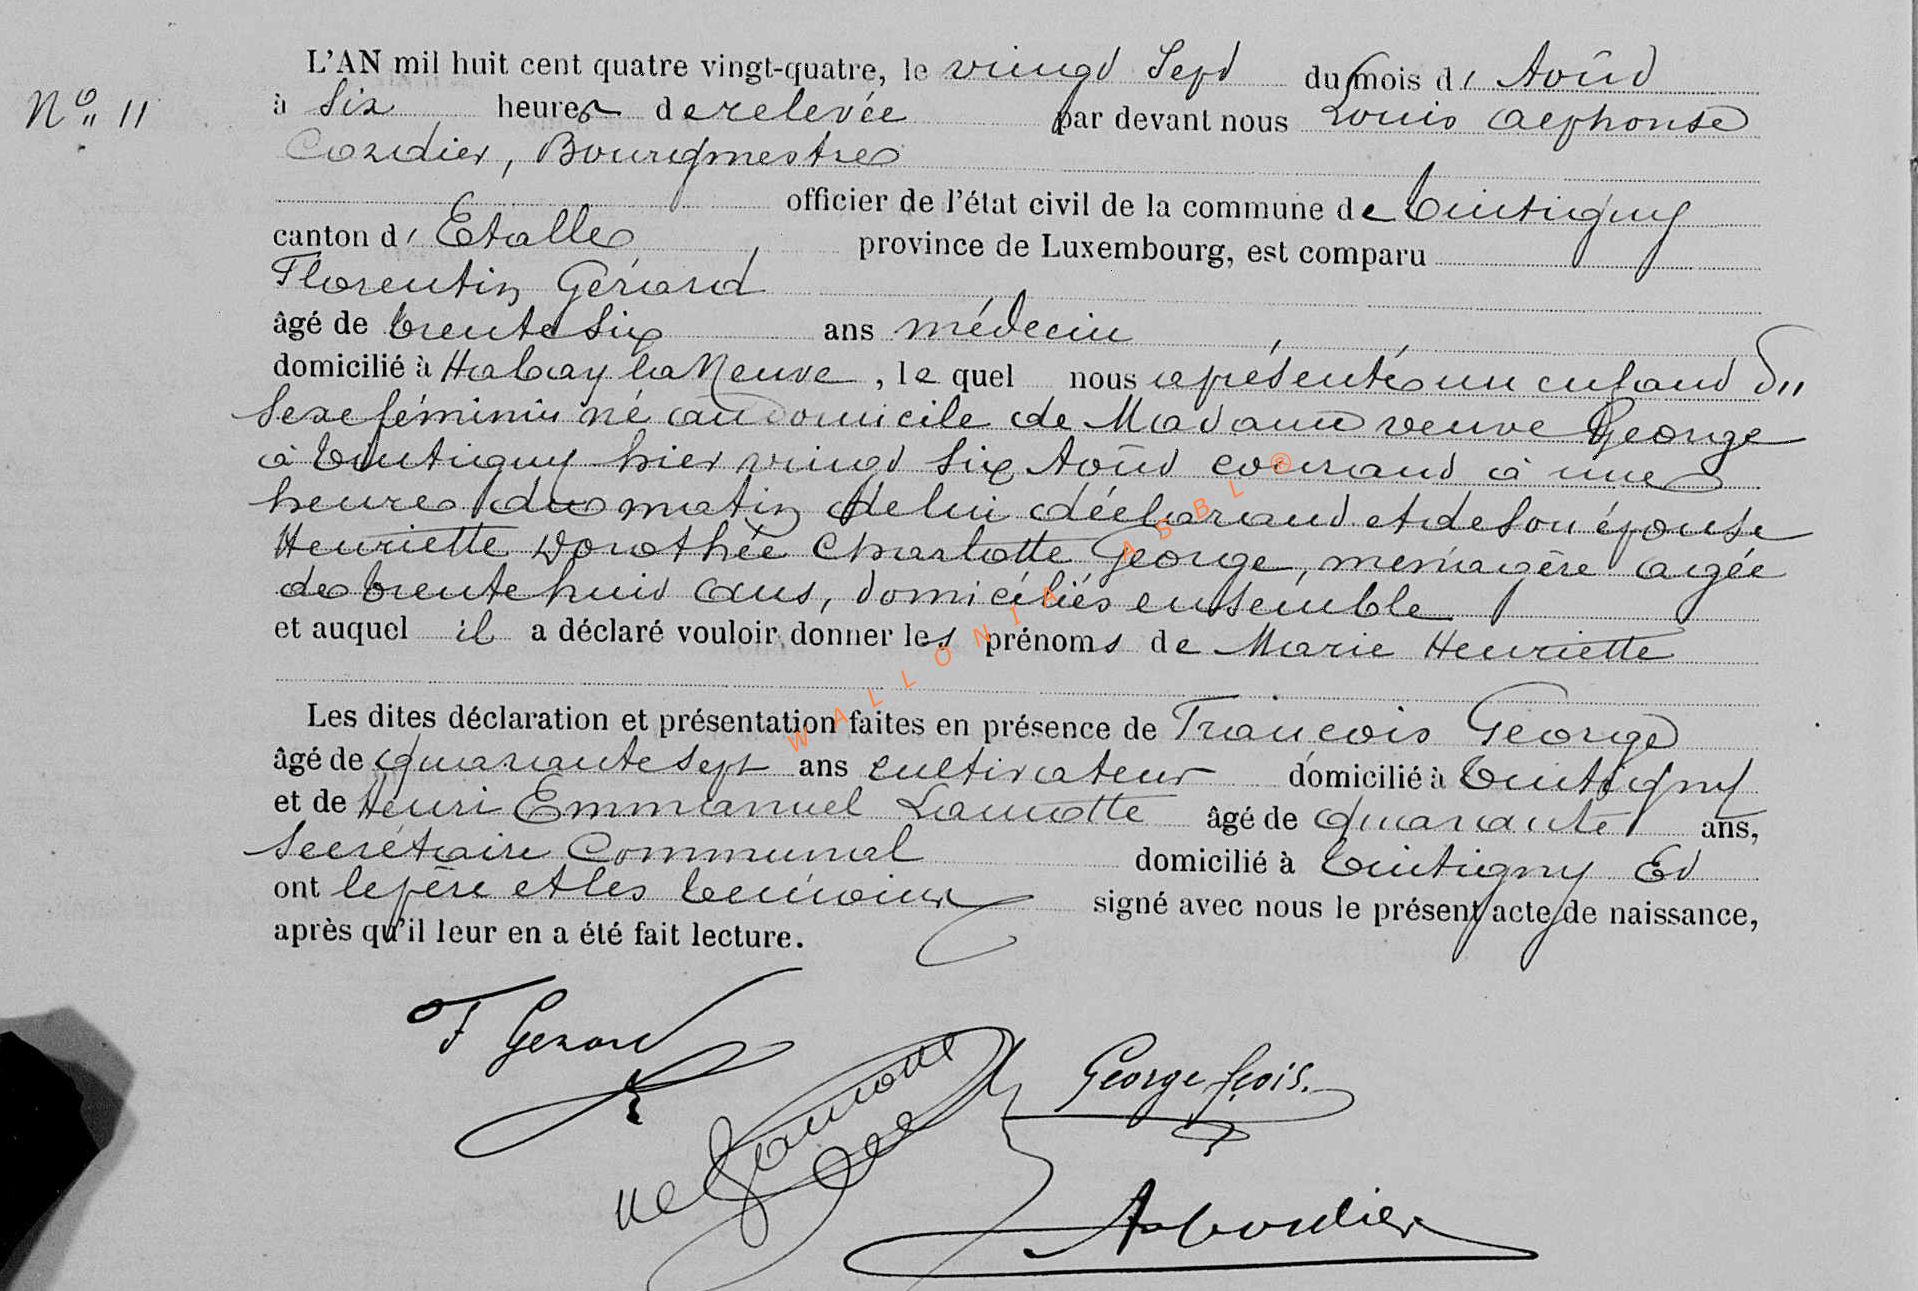 L'AN mil huit cent quatre vingt-quatre, le vingd Sept du mois d' Aoûd
N° 11
à Six heures de relevée par devant nous Louis Alphonse
Cordier, Bourgmestre
officier de l'état civil de la commune de Tintigny
canton d' Etalle, province de Luxembourg, est comparu
Florentin Gérard
âgé de trente Six ans médecin
domicilié à Habay la Neuve, le quel nous a présenté un enfand du
Sexe féminin né au domicile de Madame veuve George
à Tintigny hier vingd Six Aoûd courand à une
heure du matin de lui déclarand et de Son épouse
Henriette Dorothée Charlotte George, menagère agée
de trente huid ans, domiciliés ensemble
et auquel il a déclaré vouloir donner les prénoms de Marie Henriette
Les dites déclaration et présentation faites en présence de François George
âgé de quarante Sept ans cultivateur domicilié à Tintigny
et de Henri Emmanuel Lamotte âgé de quarante ans,
Secrétaire Communal domicilié à Tintigny Ed
ont le père et les témoins signé avec nous le présent acte de naissance,
après qu'il leur en a été fait lecture.
F Gerard
George fçois.
Lamotte
A Cordier
WALLONIA ASBL ®